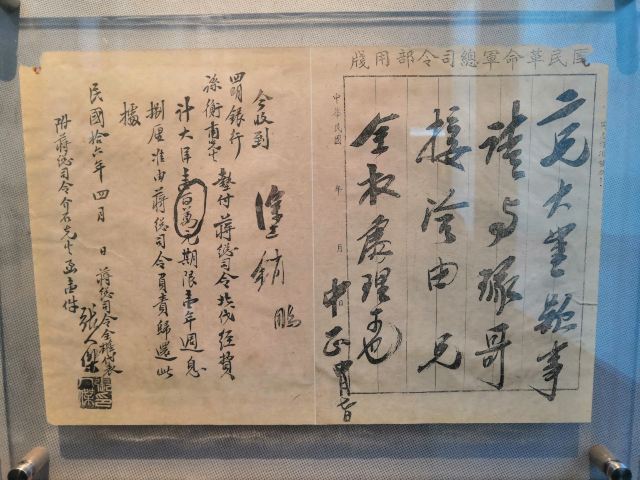 國民革命軍總司令部用牋
二兄大鑒款事
請與琢哥
接洽由 兄
全权處理可也
中正
中華民國 年 月
今收到
塗銷 鵬
四明銀行
孫衡甫先生 墊付蔣總司令北伐經費
計大洋壹百萬元期限壹年週息
捌厘准由蔣總司令負責歸還此
據
民國拾六年四月 日 蔣總司令全權代表
張人傑
附蔣總司令介石先生函壹件